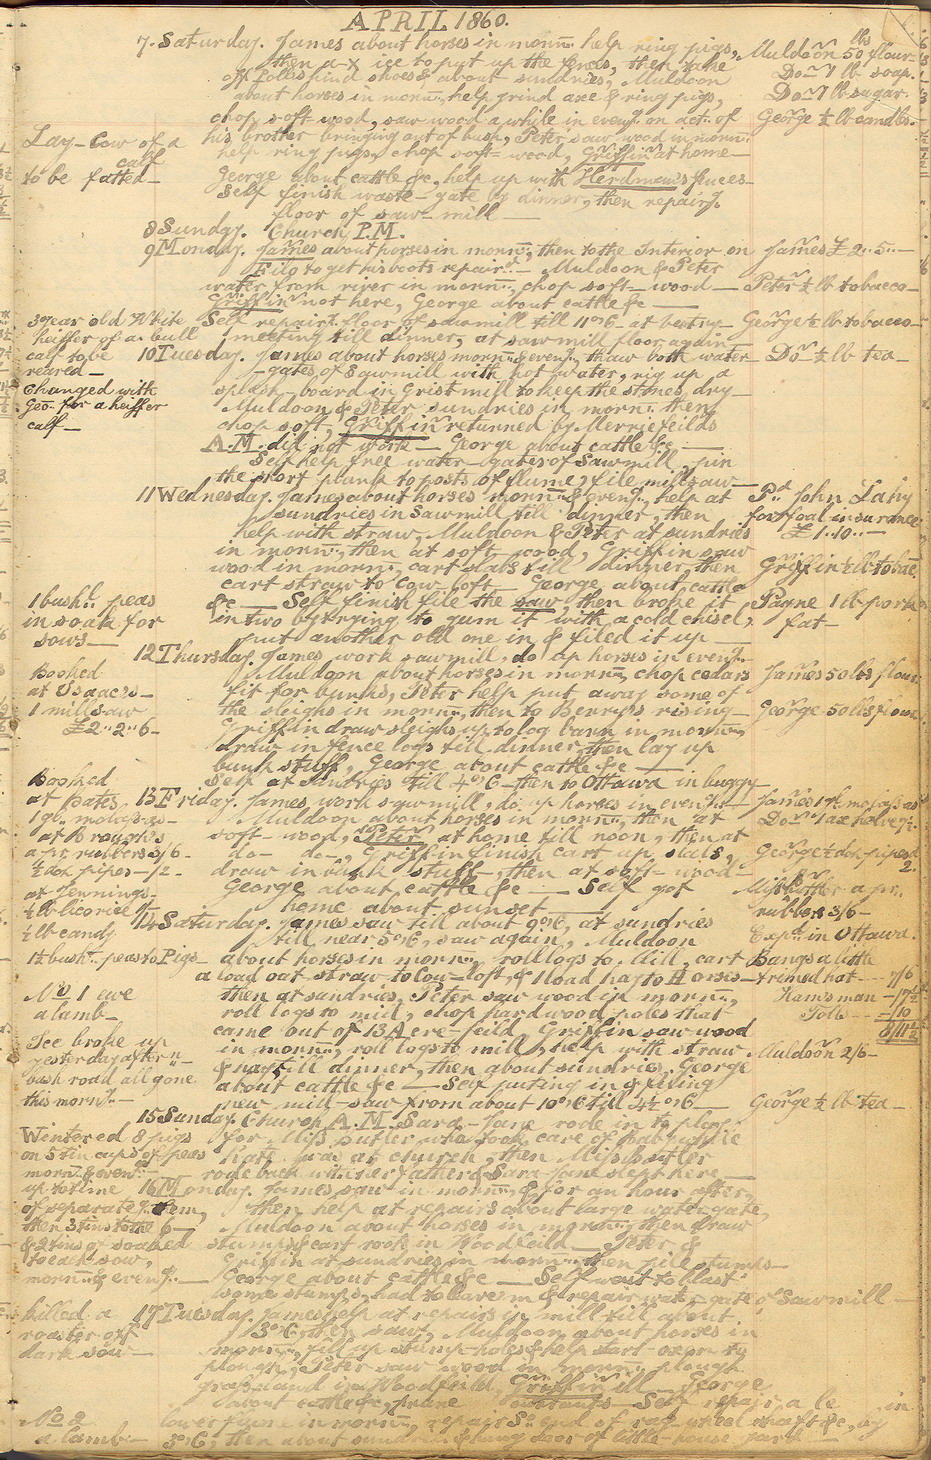 APRIL 1860.
7. Saturday. James about horses in morn.g help ring pigs,
then a-x ice to put up the , then take
off Polls hind shoes & about sundries, Muldoon
about horses in morn.g, help grind axe & ring pigs,
chop soft-wood, saw wood a while in even.g on act. of
his brother bringing out of bush, Peter saw wood in morn.g
help ring pigs, chop soft-wood, Griffin at home—
George about cattle &c, help up with Herdman's fences—
Self finish waste-gate by dinner, then repair.g
floor of saw-mill —
Muldoon 50 lbs flour
Do— 1 lb soap.
Do— 1 lb sugar.
George ½ lb candles.
Lay-Cow of a
calf
to be fatted—
8 Sunday. Church P.M.
9 Monday. James about horses in morn.g, then to the Interior on
Filo to get his boots repair.d— Muldoon & Peter
water from river in morn.g, chop soft-wood—
Griffin not here, George about cattle &c —
Self repair.g floor of sawmill till 11 o'c— at vestry
meeting till dinner, at sawmill floor again
James £ 2..5..—
Peter ½ lb tobacco—
George ½ lb tobacco—
3 year old White
heiffer of a bull
calf to be
reared—
Changed with
Geo. for a heiffer
calf—
10 Tuesday. James about horses morn.g & even.g, thaw both water
gates of Sawmill with hot water, rig up a
splash-board in Grist mill to keep the stones dry—
Muldoon & Peter sundries in morn.g then
chop soft, Griffin returned by Merriefeilds
A.M. did not work— George about cattle &c —
Self help free water-gates of Sawmill, pin
the short plank to posts of flume, file millsaw—
Do— ½ lb tea—
11 Wednesday. James about horses morn.g & even.g, help at
sundries in Sawmill till dinner, then
help with straw, Muldoon & Peter at sundries
in morn.g, then at soft wood, Griffin saw
wood in morn.g, cart slabs till dinner, then
cart straw to Cow-loft George about cattle
&c — Self finish file the saw, then broke it
in two by trying to gum it with a cold chisel,
put another old one in & filed it up—
P.d John Lahy
for foal insurance
£ 1..10..—
Griffin ½ lb tobac.
Payne 1 lb pork
fat—
1 bush.l peas
in soak for
sows—
12 Thursday. James work sawmill, do up horses in even.g—
Muldoon about horses in morn.g, chop cedars
fit for bunks, Peter help put away some of
the sleighs in morn.g, then to Berry's rising—
Griffin draw sleighs up to log barn in morn.g
draw in fence logs till dinner, then lay up
bunk stuff, George about cattle &c —
Self at sundries till 4 o'c— then to Ottawa in buggy—
James 50 lbs flour
George 50 lbs flour
Booked
at Isaacs—
1 millsaw
£2..2..6—
13 Friday. James, work sawmill, do up horses in even.g—
Muldoon about horses in morn.g, then at
soft-wood, Peter at home till noon, then at
do— do—, Griffin finish cart up slabs,
draw in bunk stuff, then at soft-wood—
George about cattle &c — Self got
home about sunset—
James 1 gl. molasses
Do— 1 axe helve
George ½ doz pipes
2.
Miss Butler a pr.
rubbers 3/6—
Booked
at Bates.
1 gl. molasses—
at Brough's
a pr. rubbers 3/6—
½ doz pipes—
at Jennings—
¼ lb licorice
½ lb candy
14 Saturday. James saw till about 9 o'c, at sundries
till near 5 o'c, saw again, Muldoon
about horses in morn.g, roll logs to Mill, cart
a load oat straw to Cow-loft, & 1 load hay to Horses—
then at sundries, Peter saw wood in morn.g,
roll logs to mill, chop hard wood poles that
came out of 13 Acre-feild, Griffin saw wood
in morn.g, roll logs to mill, help with straw
& hay till dinner, then about sundries, George
about cattle &c — Self putting in & fileing
new mill-saw from about 10 o'c till 4½ o'c—
Exp.s in Ottawa.
Bangs a little
trimed hat— 7/6
Hamsman— 1/7½
Tolls— —/10
Muldoon 2/6—
George ½ lb tea—
1½ bush.l peas to Pigs—
No 1 ewe
a lamb—
Ice broke up
yesterday aftern.n
bush road all gone
this morn.g—
15 Sunday. Church A.M. Sara-Jane rode in to
for Miss Butler who took care of baby while
Kate was at church, then Miss Butler
rode back with her father & Sara-Jane slept here—
Wintered 8 pigs
on 5 tin cups of peas
morn.g & even.g—
up to time
of separate.g them,
then 3 tins to the 6—
& 2 tins of soaked
to each sow,
morn.g & even.g—
16 Monday. James saw in morn.g, & for an hour after,
then help at repairs about large water-gate,
Muldoon about horses in morn.g, then draw
stumps & cart rock in Woodfeild— Peter &
Griffin at sundries in morn.g, then pile stumps—
George about cattle &c — Self wait to blast
some stumps, had to leave in & repair water-gate of Sawmill—
killed a
roaster off
dark sow—
17 Tuesday. James help at repairs in mill till about
3 o'c, then saw, Muldoon about horses in
morn.g, fill up stump-holes & help start oxen to
plough, Peter saw wood in morn.g, plough
grassland in Woodfeild, Griffin ill— George
about cattle &c, prune — Self repair a
lower flume in morn.g, repair S. end of rag wheel shaft &c, by
3 o'c, then about sundries & hung door of little-house yard—
No 2
a lamb—